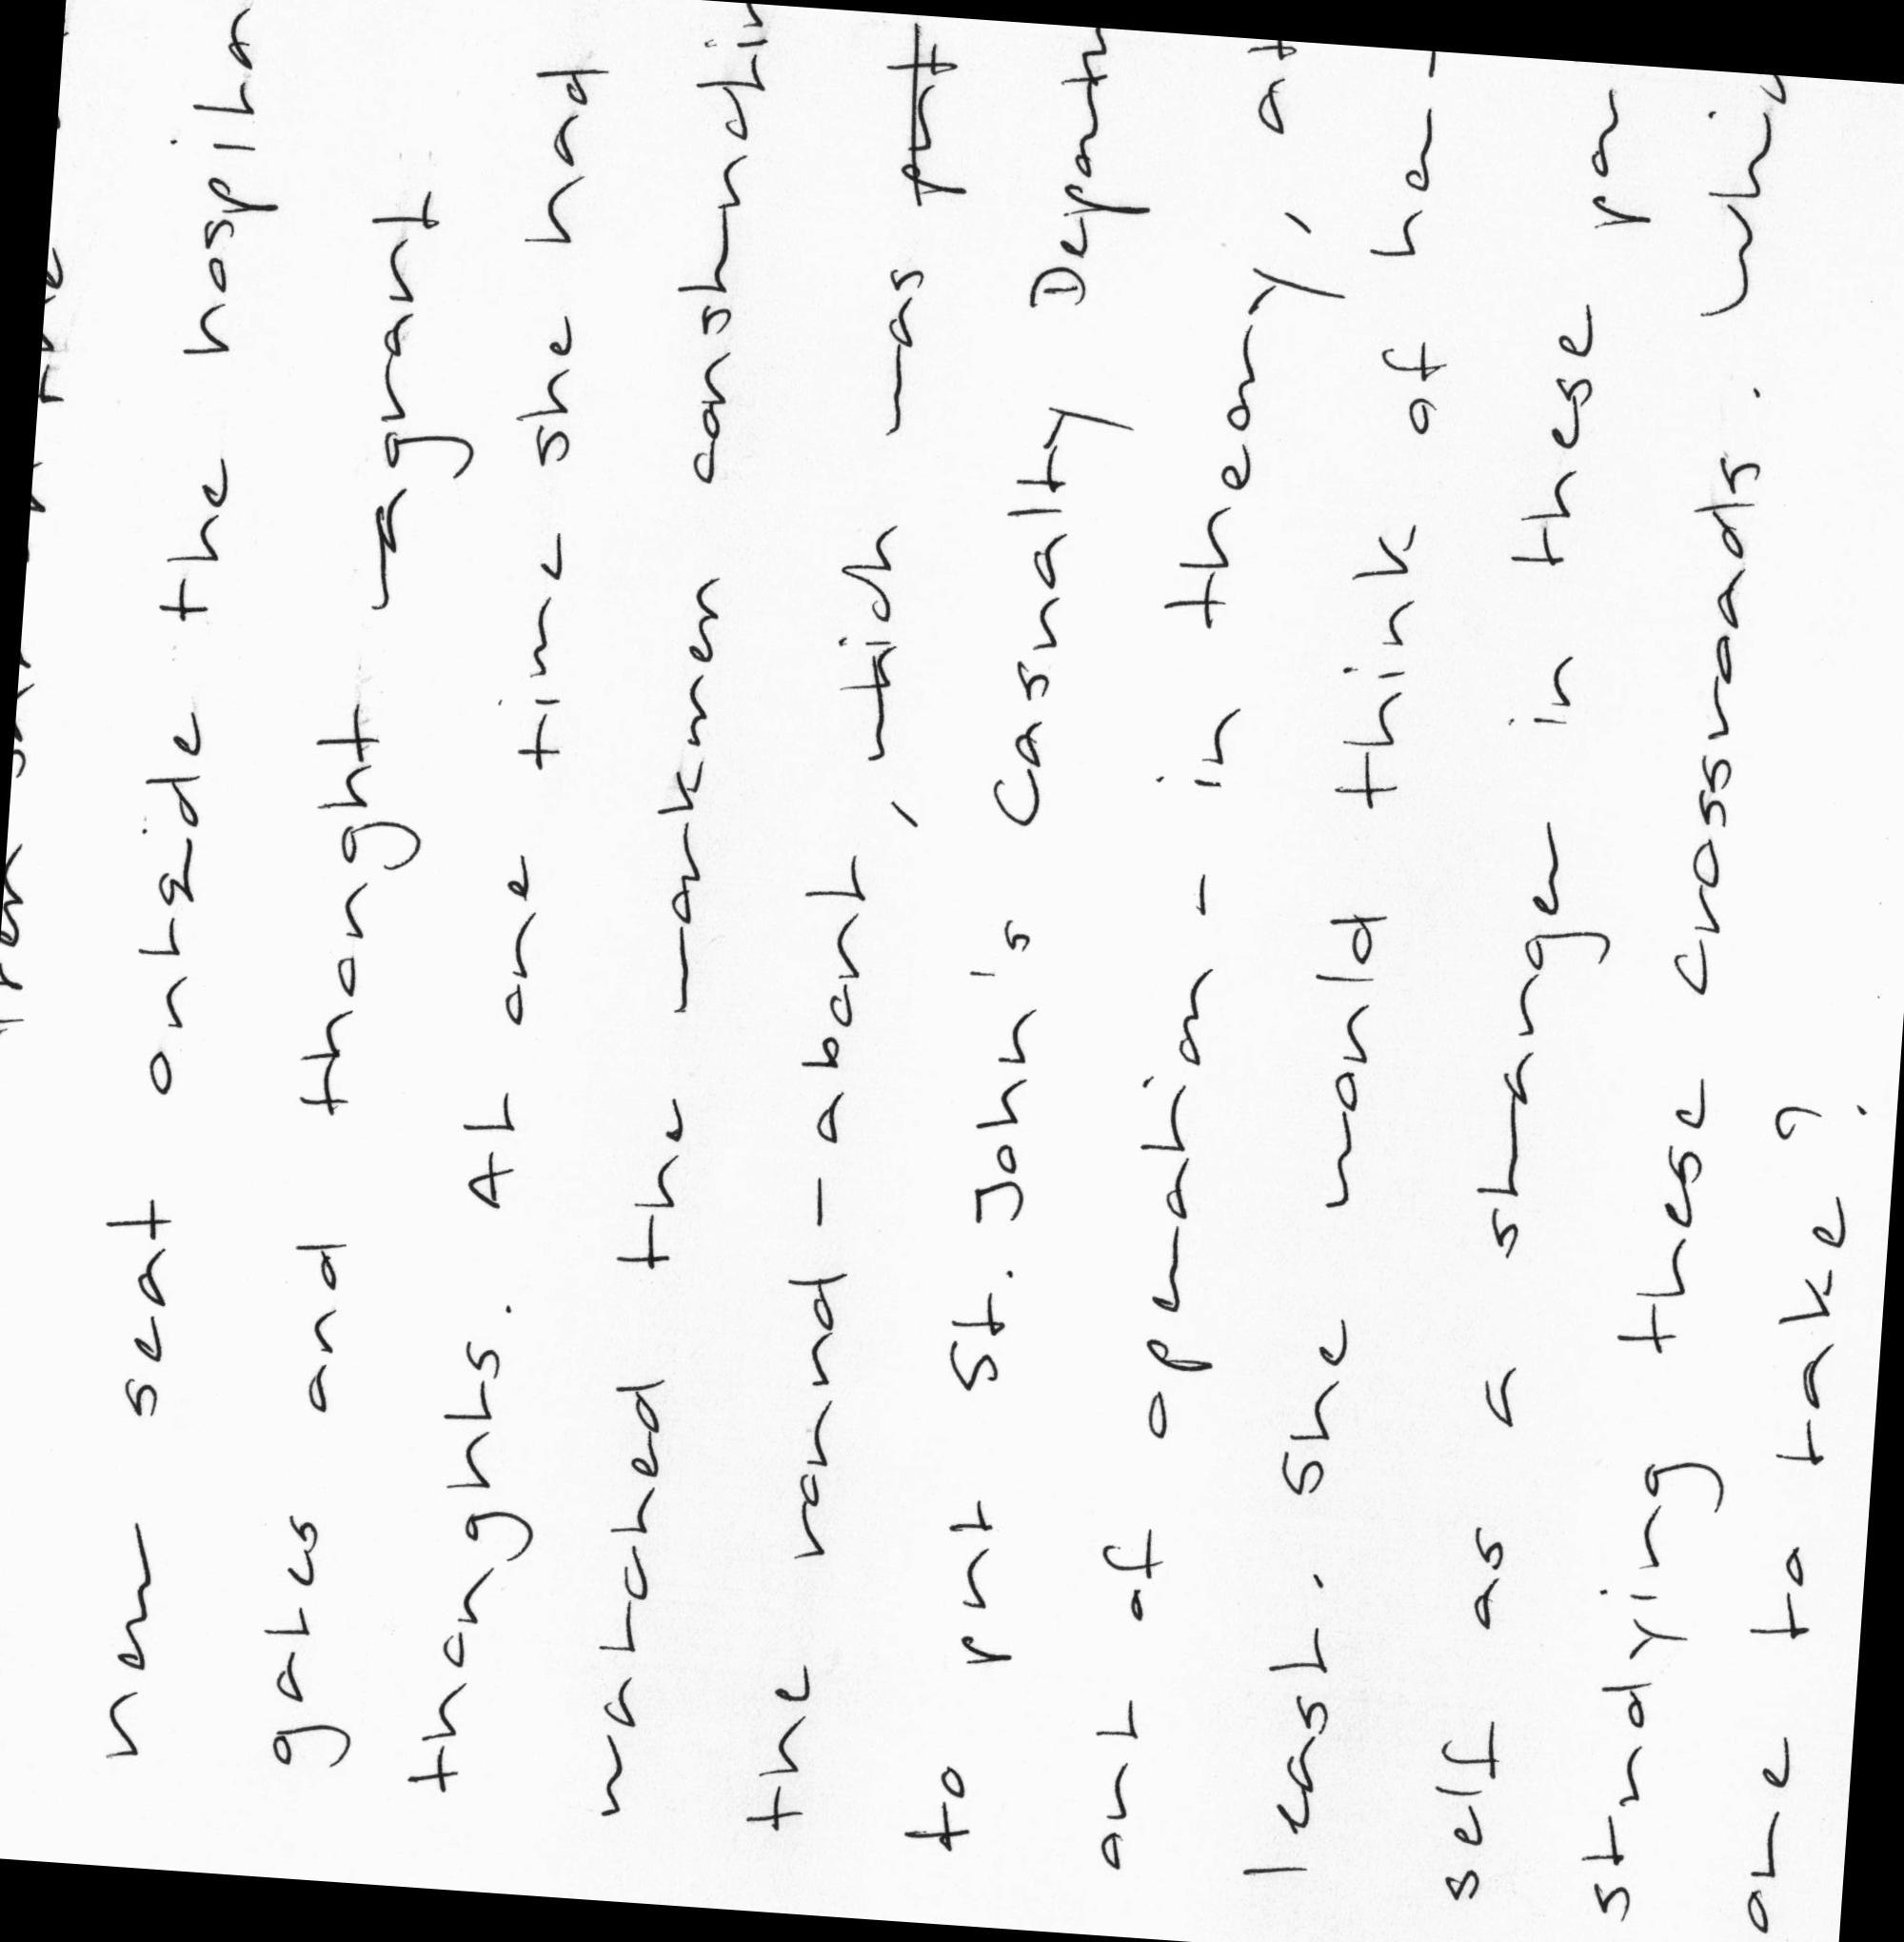 new seat outside the hospita
gates and thought vagrant
thoughts. At one time she had
watched the workmen constructin
the round-about, which was put
to put St. John's Casualty Depart
out of operation - in theory, at
least. She would think of her-
self as a stranger in these pa
studying these crossroads. Whic
one to take?